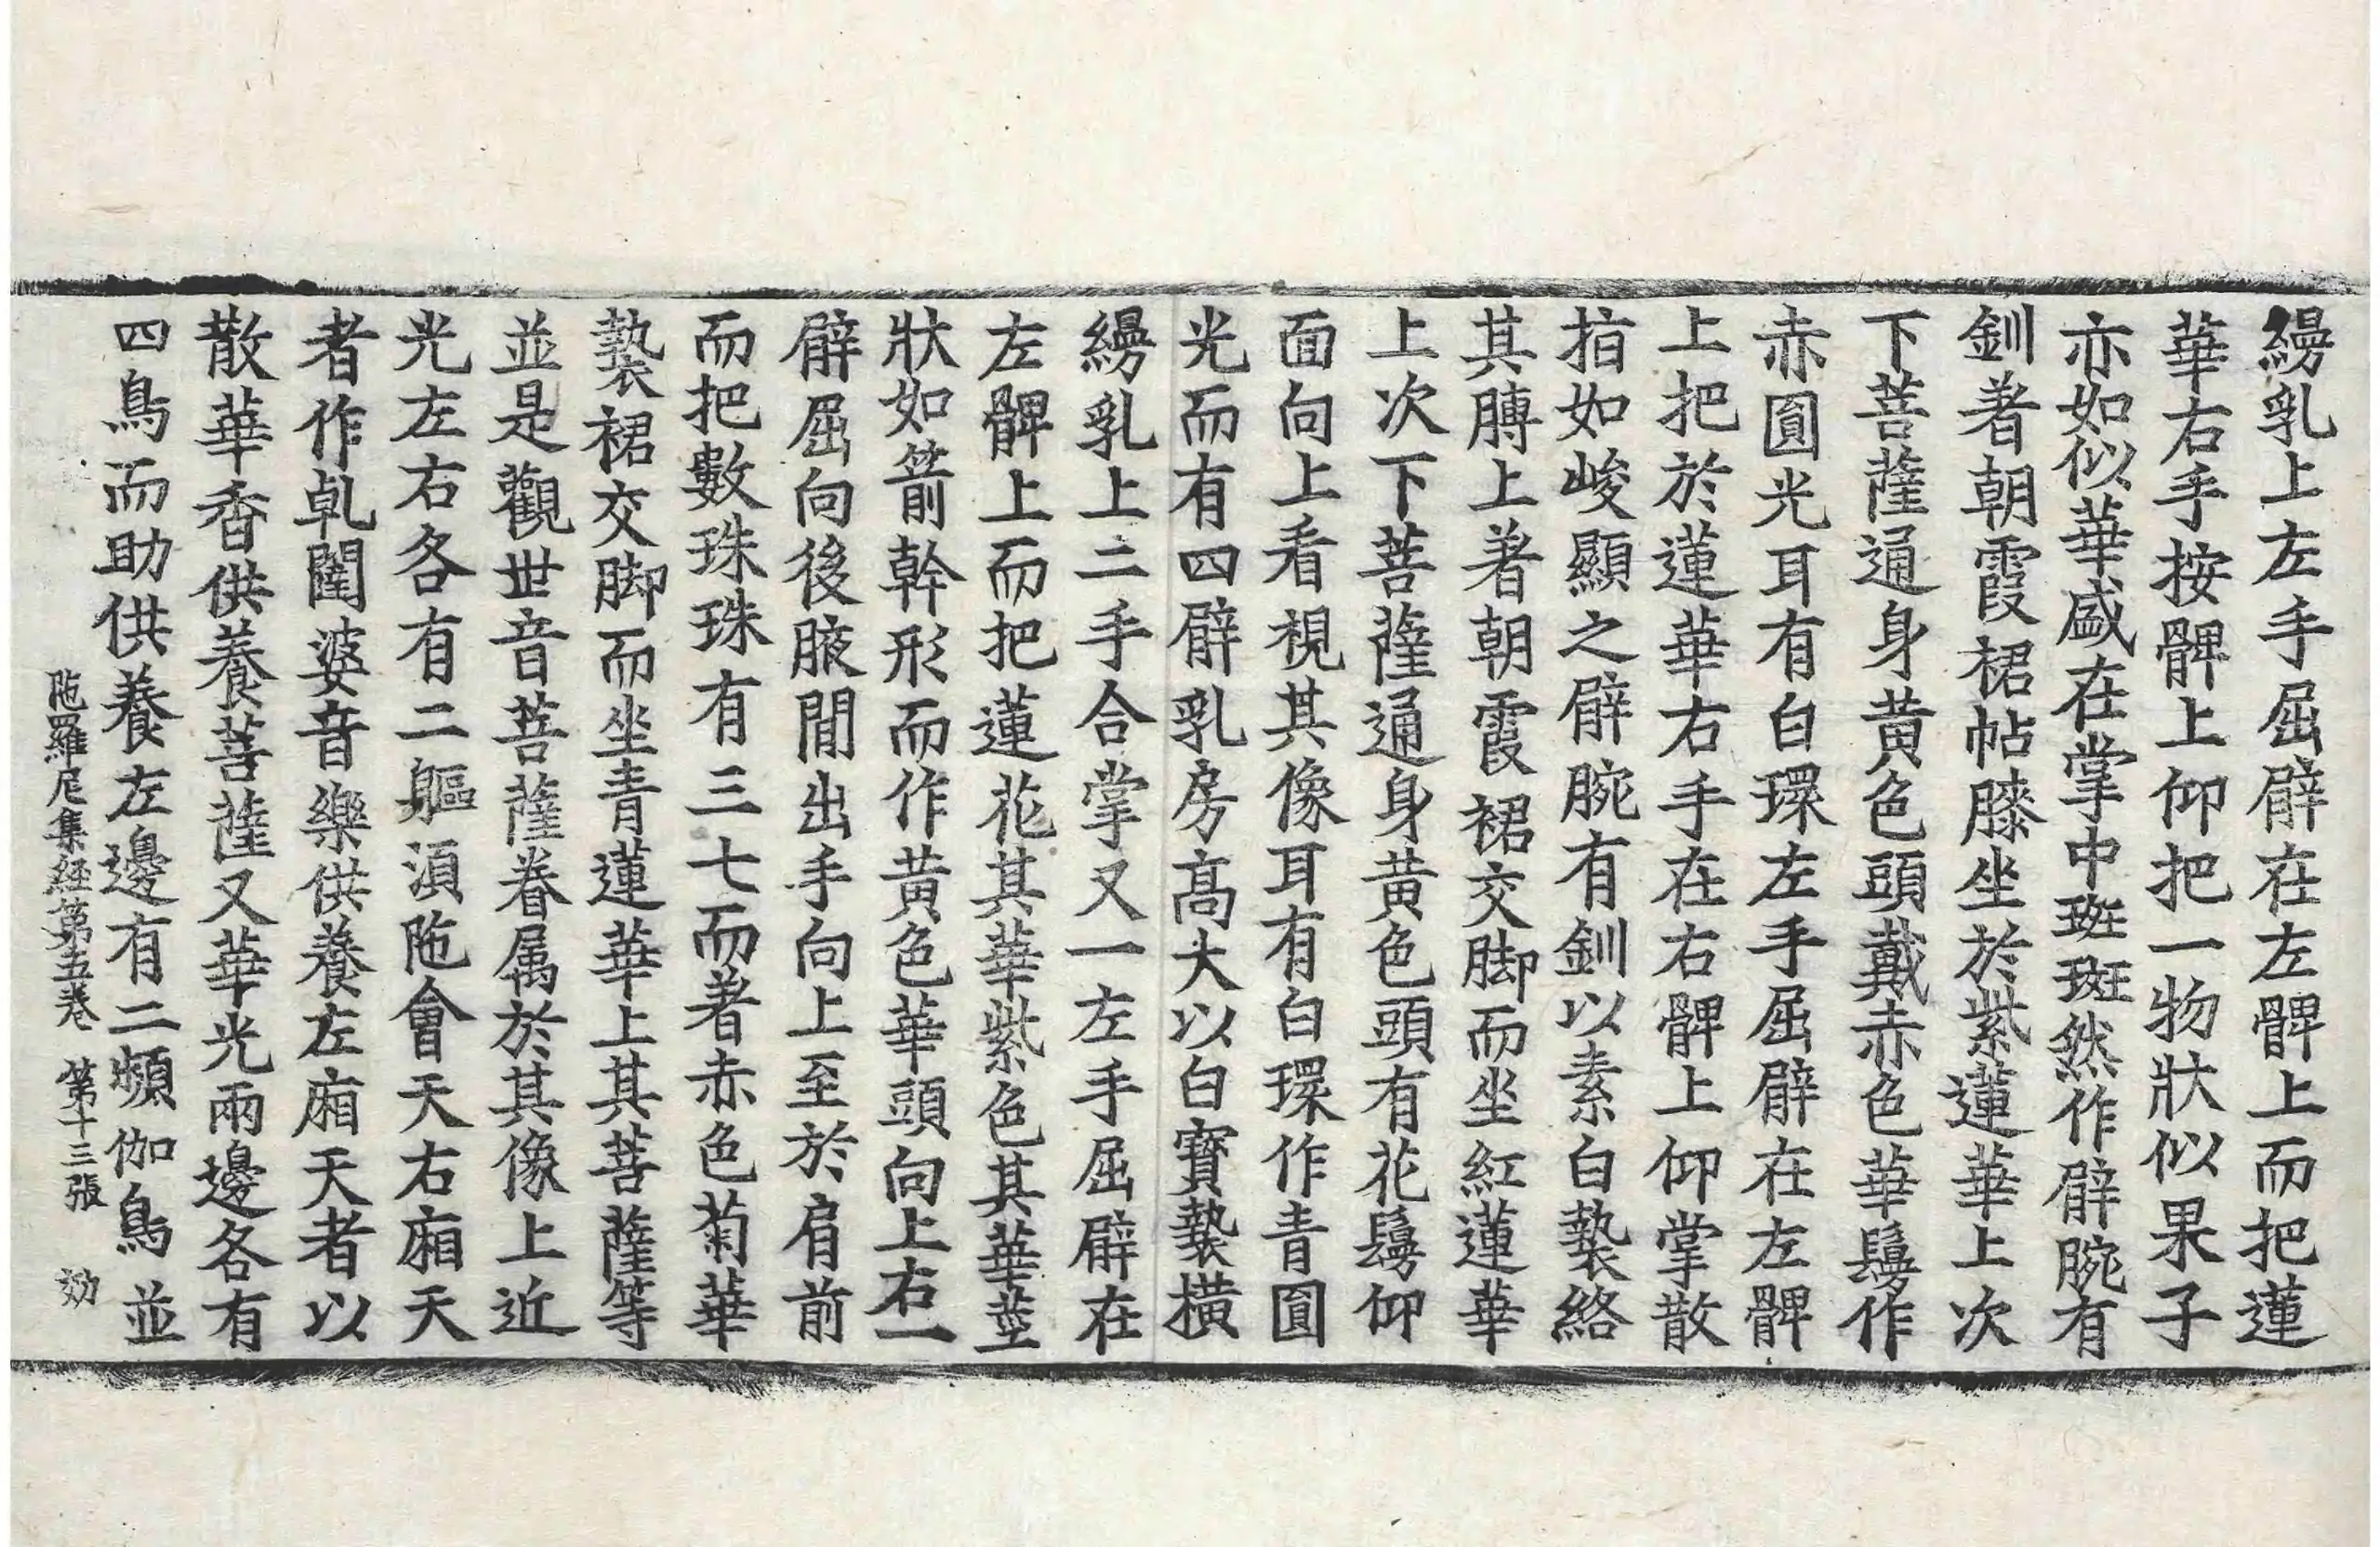 縵乳上左手屈臂在左髀上而把蓮
華右手按髀上仰把一物狀似果子
亦如似華盛在掌中斑斑然作臂腕有
釧著朝霞裙帖膝坐於紫蓮華上次
下菩薩通身黃色頭戴赤色華鬘作
赤圓光耳有白環左手屈臂在左髀
上把於蓮華右手在右髀上仰掌散
指如峻顯之臂腕有釧以素白褺絡
其膊上著朝霞裙交脚而坐紅蓮華
上次下菩薩通身黃色頭有花鬘仰
面向上看視其像耳有白環作青圓
光而有四臂乳房高大以白寶褺橫
縵乳上二手合掌又一左手屈臂在
左髀上而把蓮花其華紫色其華莖
狀如箭幹形而作黃色華頭向上右一
臂屈向後腋間出手向上至於肩前
而把數珠珠有三七而著赤色菊華
褺裙交脚而坐青蓮華上其菩薩等
並是觀世音菩薩眷属於其像上近
光左右各有二軀湏陁會天右廂天
者作乹闥婆音樂供養左廂天者以
散華香供養菩薩又華光兩邊各有
四鳥而助供養左邊有二頻伽鳥並
陁羅尼集経第五卷　第十三張　効